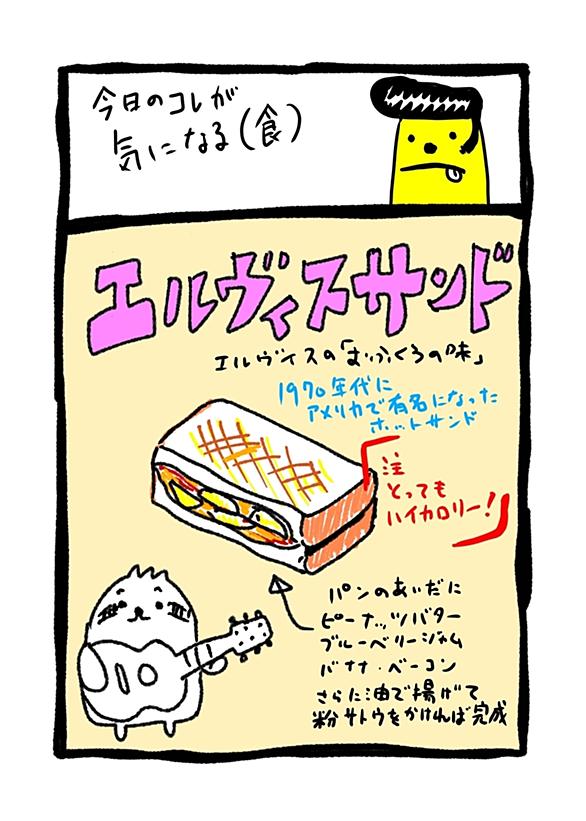 今日のコレが
気になる(食)
エルヴィスサンド
エルヴィスの「おふくろの味」
1970年代に
アメリカで有名になった
ホットサンド
注
とっても
ハイカロリー!
パンのあいだに
ピーナッツバター
ブルーベリージャム
バナナ・ベーコン
さらに油で揚げて
粉サトウをかければ完成